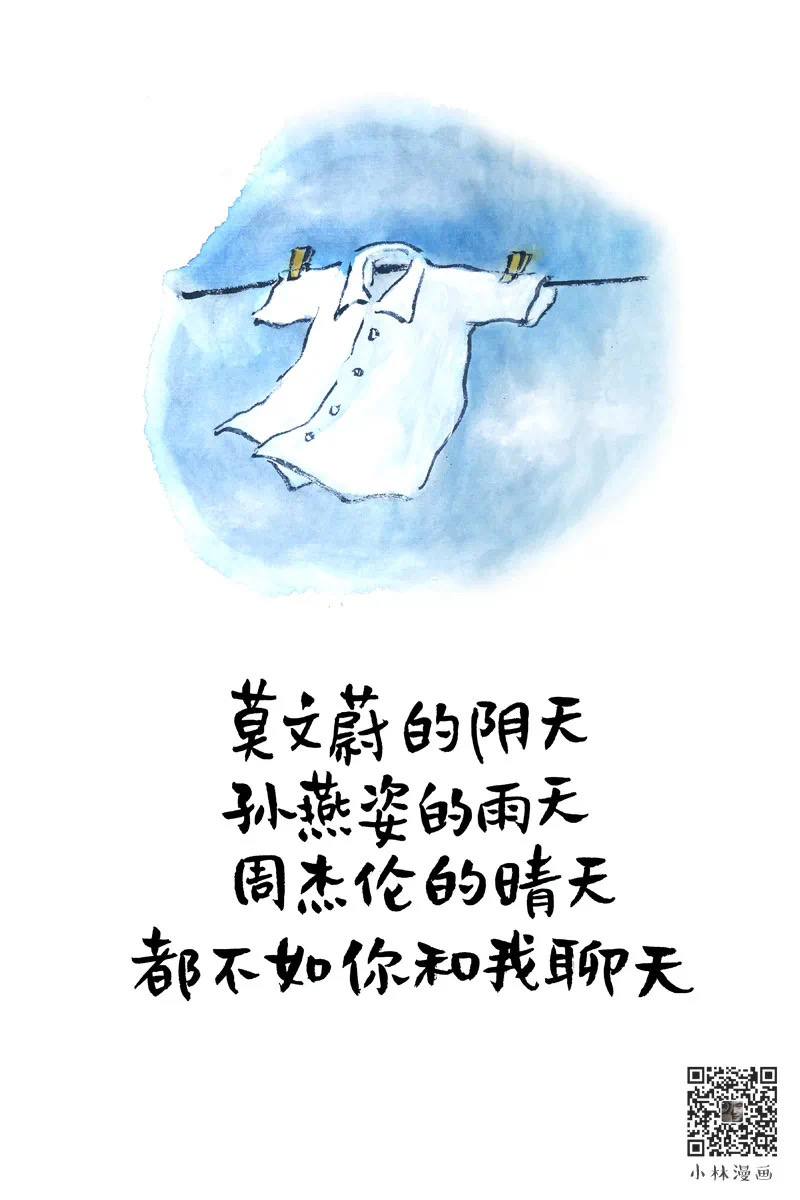 莫文蔚的阴天
孙燕姿的雨天
周杰伦的晴天
都不如你和我聊天
小林漫画